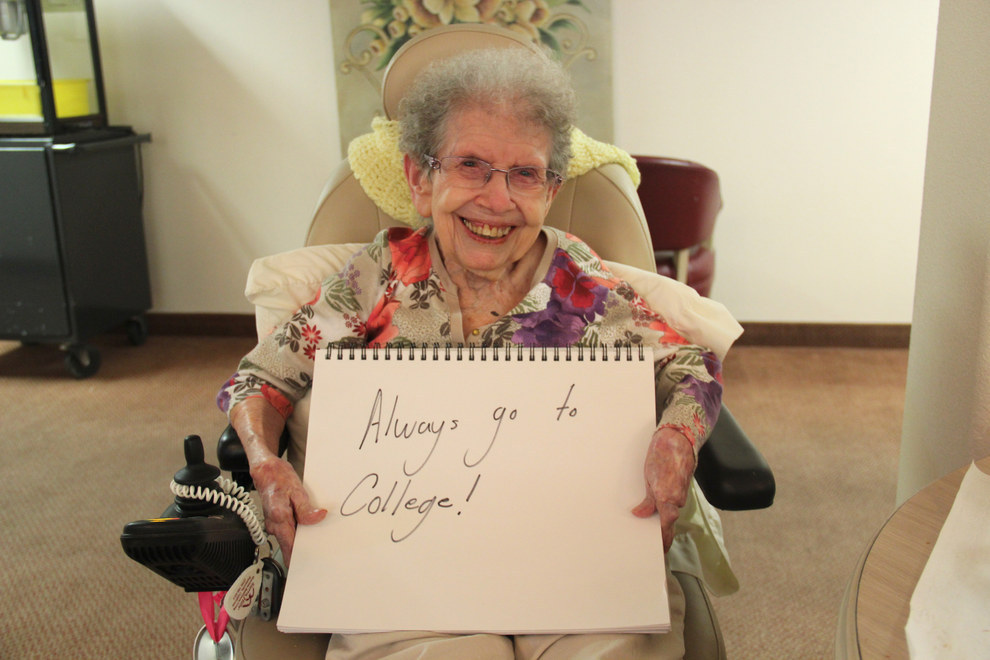 Always go to
College!